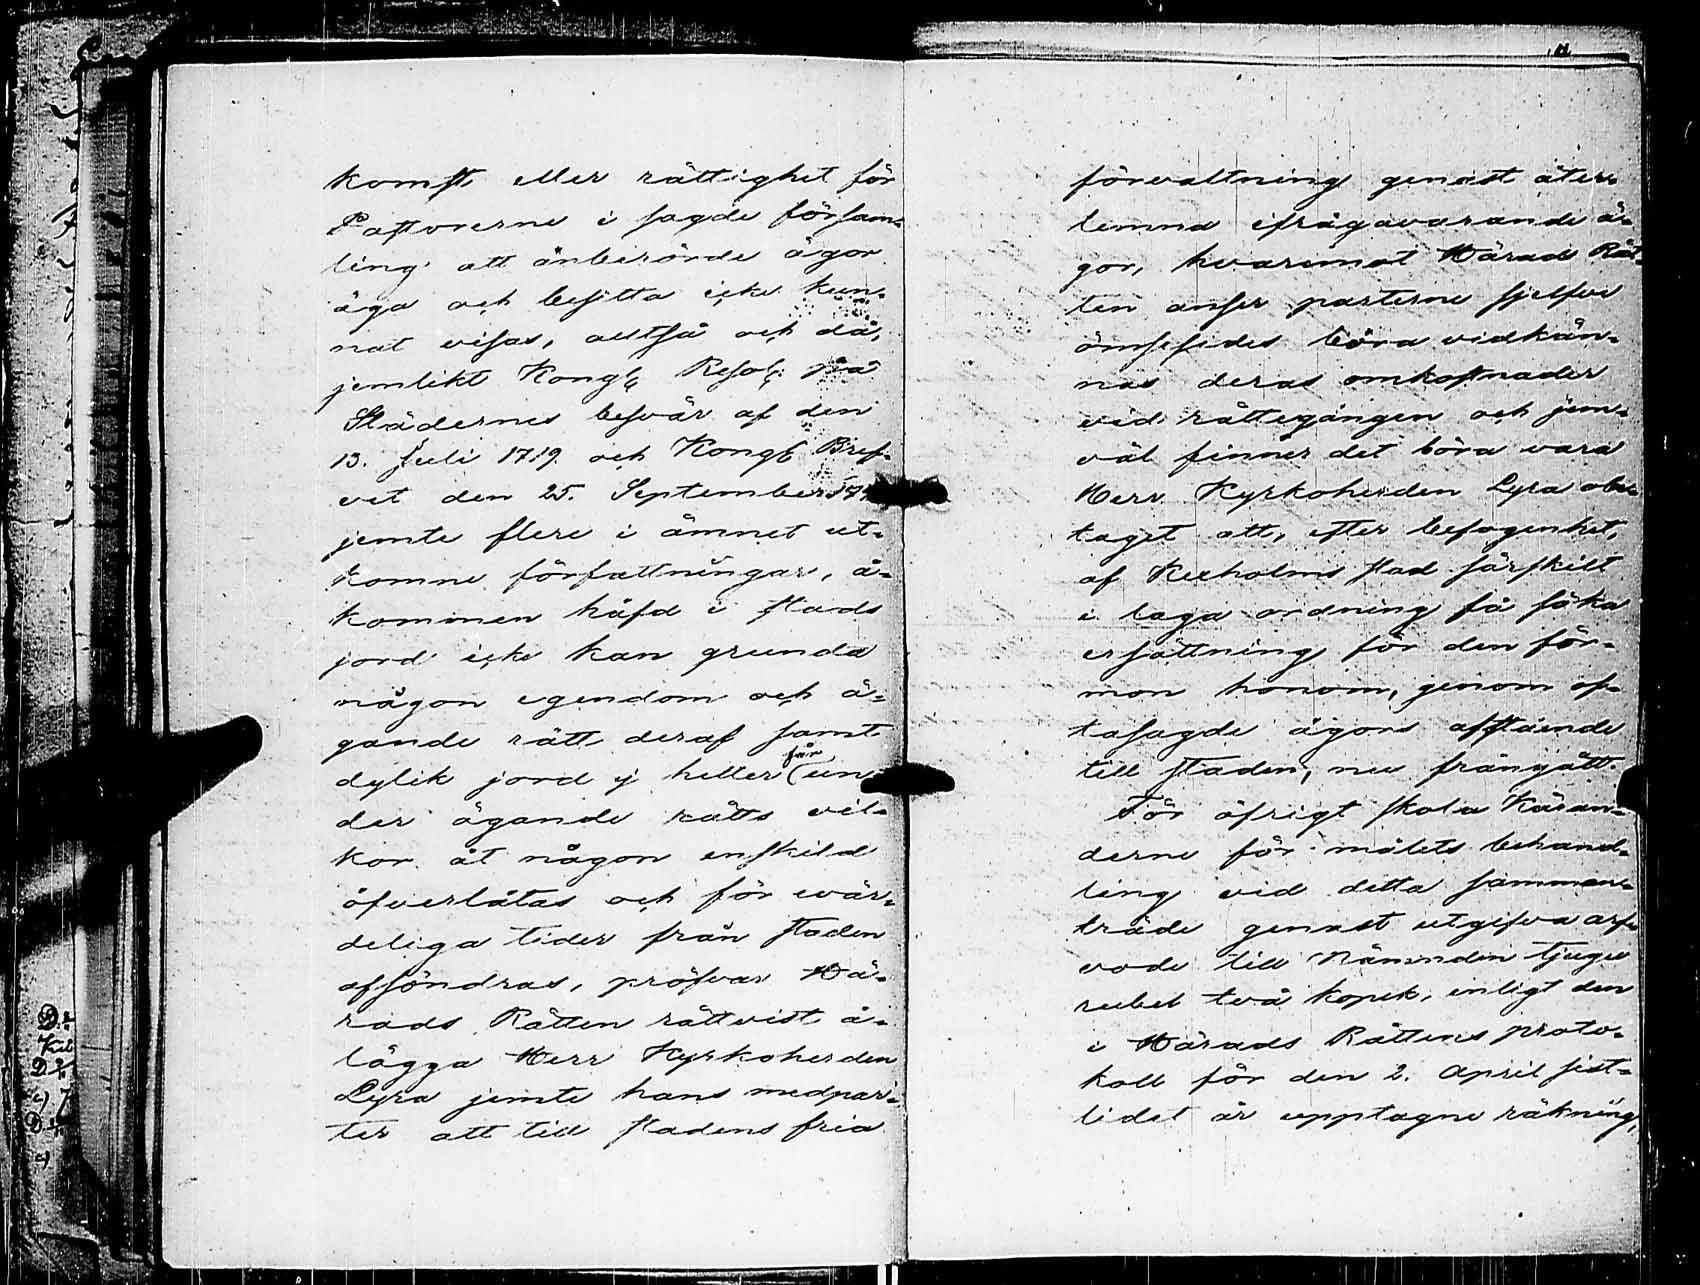 komst eller rättighet för
Pastorerne i sagde försam=
ling att ånberörde ägor
äga och besitta icke kun=
nat visas, alltså och då,
jemlikt Kongl. Resol. på
Städernes besvär af den
13. Juli 1719 och Kongl Bref=
vet den 25. September
jemte flere i ämnet ut=
komne författningar, å=
kommen häfd i stads
jord icke kan grunda
någon egendom och ä=
gande rätt deraf samt
dylik jord ej heller får un=
der ägande rätts vil=
kor åt någon enskild
öfverlåtas och för evär=
deliga tider från staden
afsöndras, pröfvar Hä=
rads Rätten rättvist å=
lägga Herr Kyrkoherden
Lyra jemte hans medpar=
ter att till stadens fria
förvaltning genast åter=
lemna ifrågavarande ä=
gor, hvaremot Härads Rät=
ten anser parterne sjelfve
ömsesides böra vidkän=
nas deras omkostnader
vid rättegången och jem=
väl finner det böra vara
Herr Kyrkoherden Lyra obe=
taget att, efter befogenhet,
af Kexholms stad särskilt
i laga ordning få söka
ersättning för den för=
mon honom, genom of=
tasagde ägors afstående
till staden, nu frångått.
För öfrigt skola Käran=
derne för målets behand=
ling vid detta samman=
träde genast utgifva arf=
vode till Nämnden tjugu
rubel två kopek, enligt den
i Härads Rättens proto=
koll för den 2. April sist=
lidet år upptagne räkning,